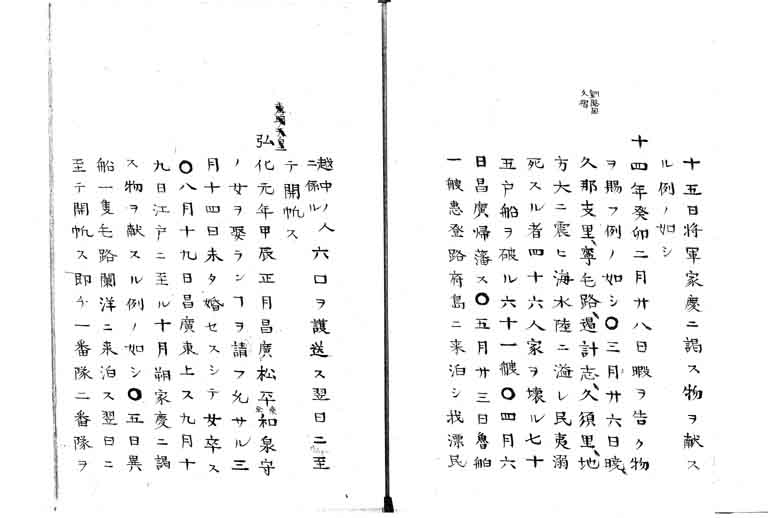 十五日将軍家慶ニ謁ス物ヲ献ス
ル例ノ如シ
十四年癸卯二月廿八日暇ヲ告ク物
ヲ賜フ例ノ如シ〇三月廿六日暁、
久那支里、寧毛路、遏計志、久須里、地
方大ニ震ヒ海水陸ニ溢レ民夷溺
死スル者四十六人家ヲ壊ル七十
五戸船ヲ破ル六十一艘〇四月六
日昌廣帰藩ス〇五月廿三日魯舶
一艘恵登路府島ニ来泊シ我漂民
越中ノ人六口ヲ護送ス翌日ニ至
ニ係ル
テ開帆ス
弘化元年甲辰正月昌廣松平和泉守
乗全
ノ女ヲ娶ランヿヲ請フ允サル三
月十四日未タ婚セスシテ女卒ス
〇八月十九日昌廣東上ス九月十
九日江戸ニ至ル十月朔家慶ニ謁
ス物ヲ献スル例ノ如シ〇五日異
船一隻毛路蘭洋ニ来泊ス翌日ニ
至テ開帆ス即チ一番隊二番隊ヲ